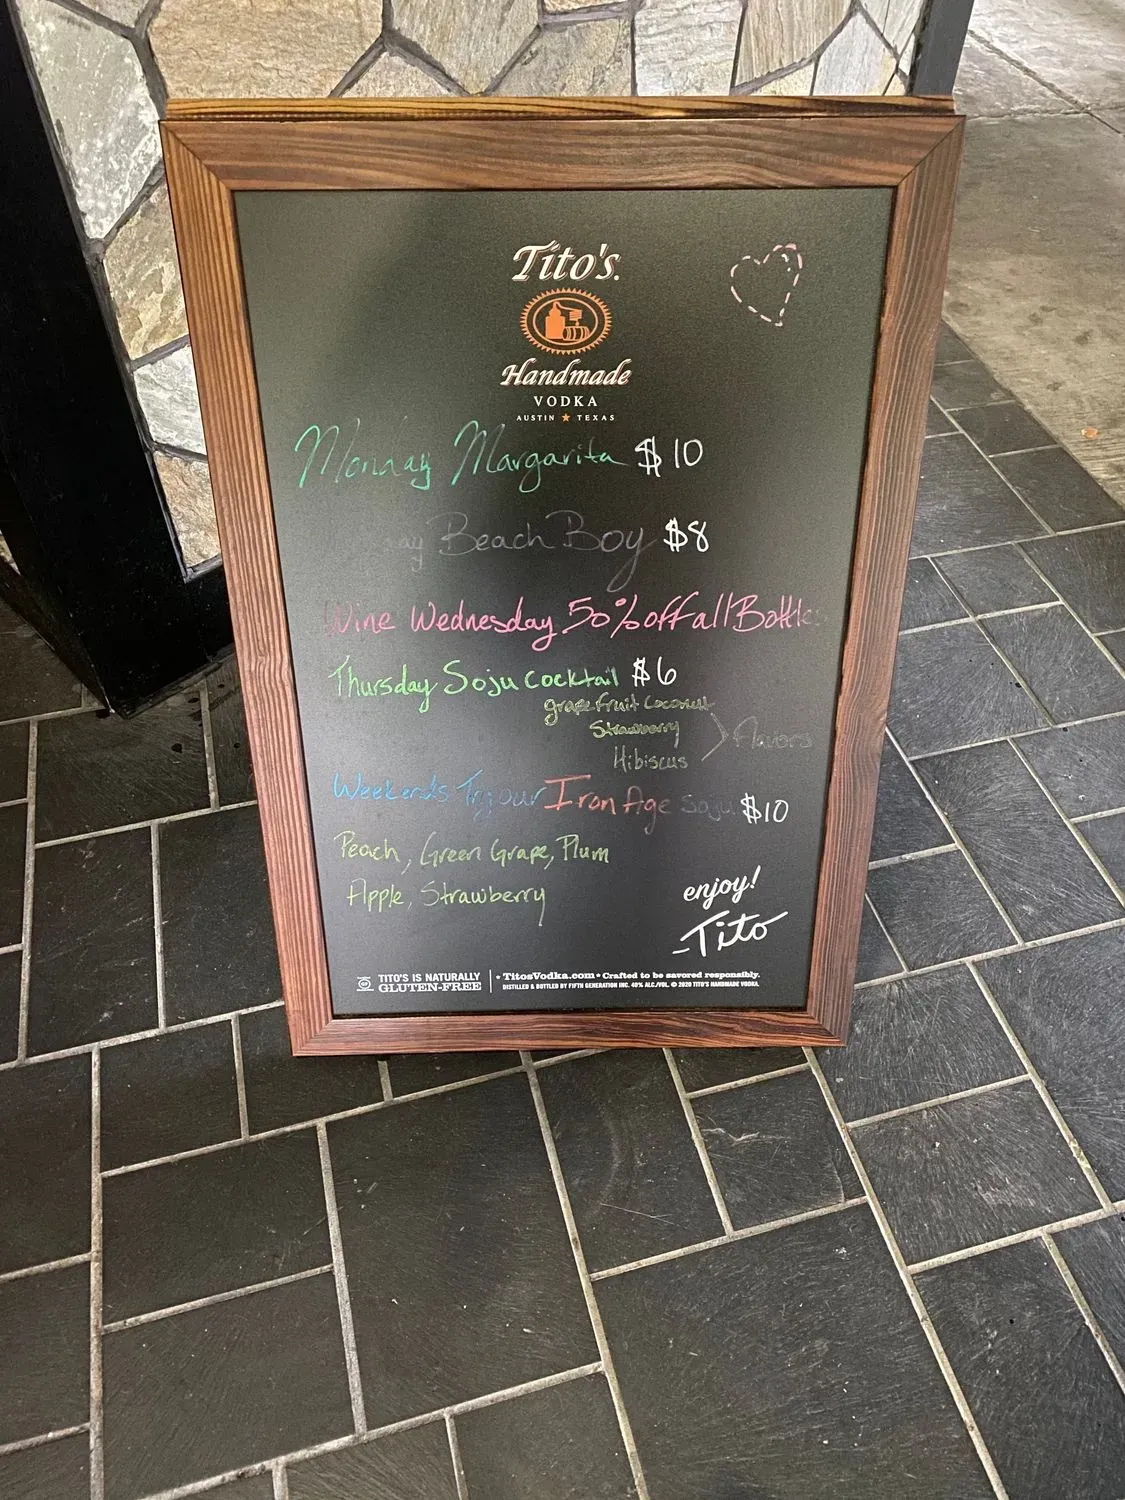 Tito's
Handmade
VODKA
AUSTIN ★ TEXAS
Monday Margarita $10
Beach Boy $8
Wine Wednesday 50% off all Bottles
Thursday Soju cocktail $6
grapefruit Coconut
Strawberry
Flavors
Hibiscus
Weekends Try our Iron Age Soju $10
Peach, Green Grape, Plum
Apple, Strawberry
enjoy!
-Tito
TITO'S IS NATURALLY
GLUTEN-FREE
• TitosVodka.com • Crafted to be savored responsibly.
DISTILLED & BOTTLED BY FIFTH GENERATION INC. 40% ALC./VOL. © 2020 TITO'S HANDMADE VODKA.